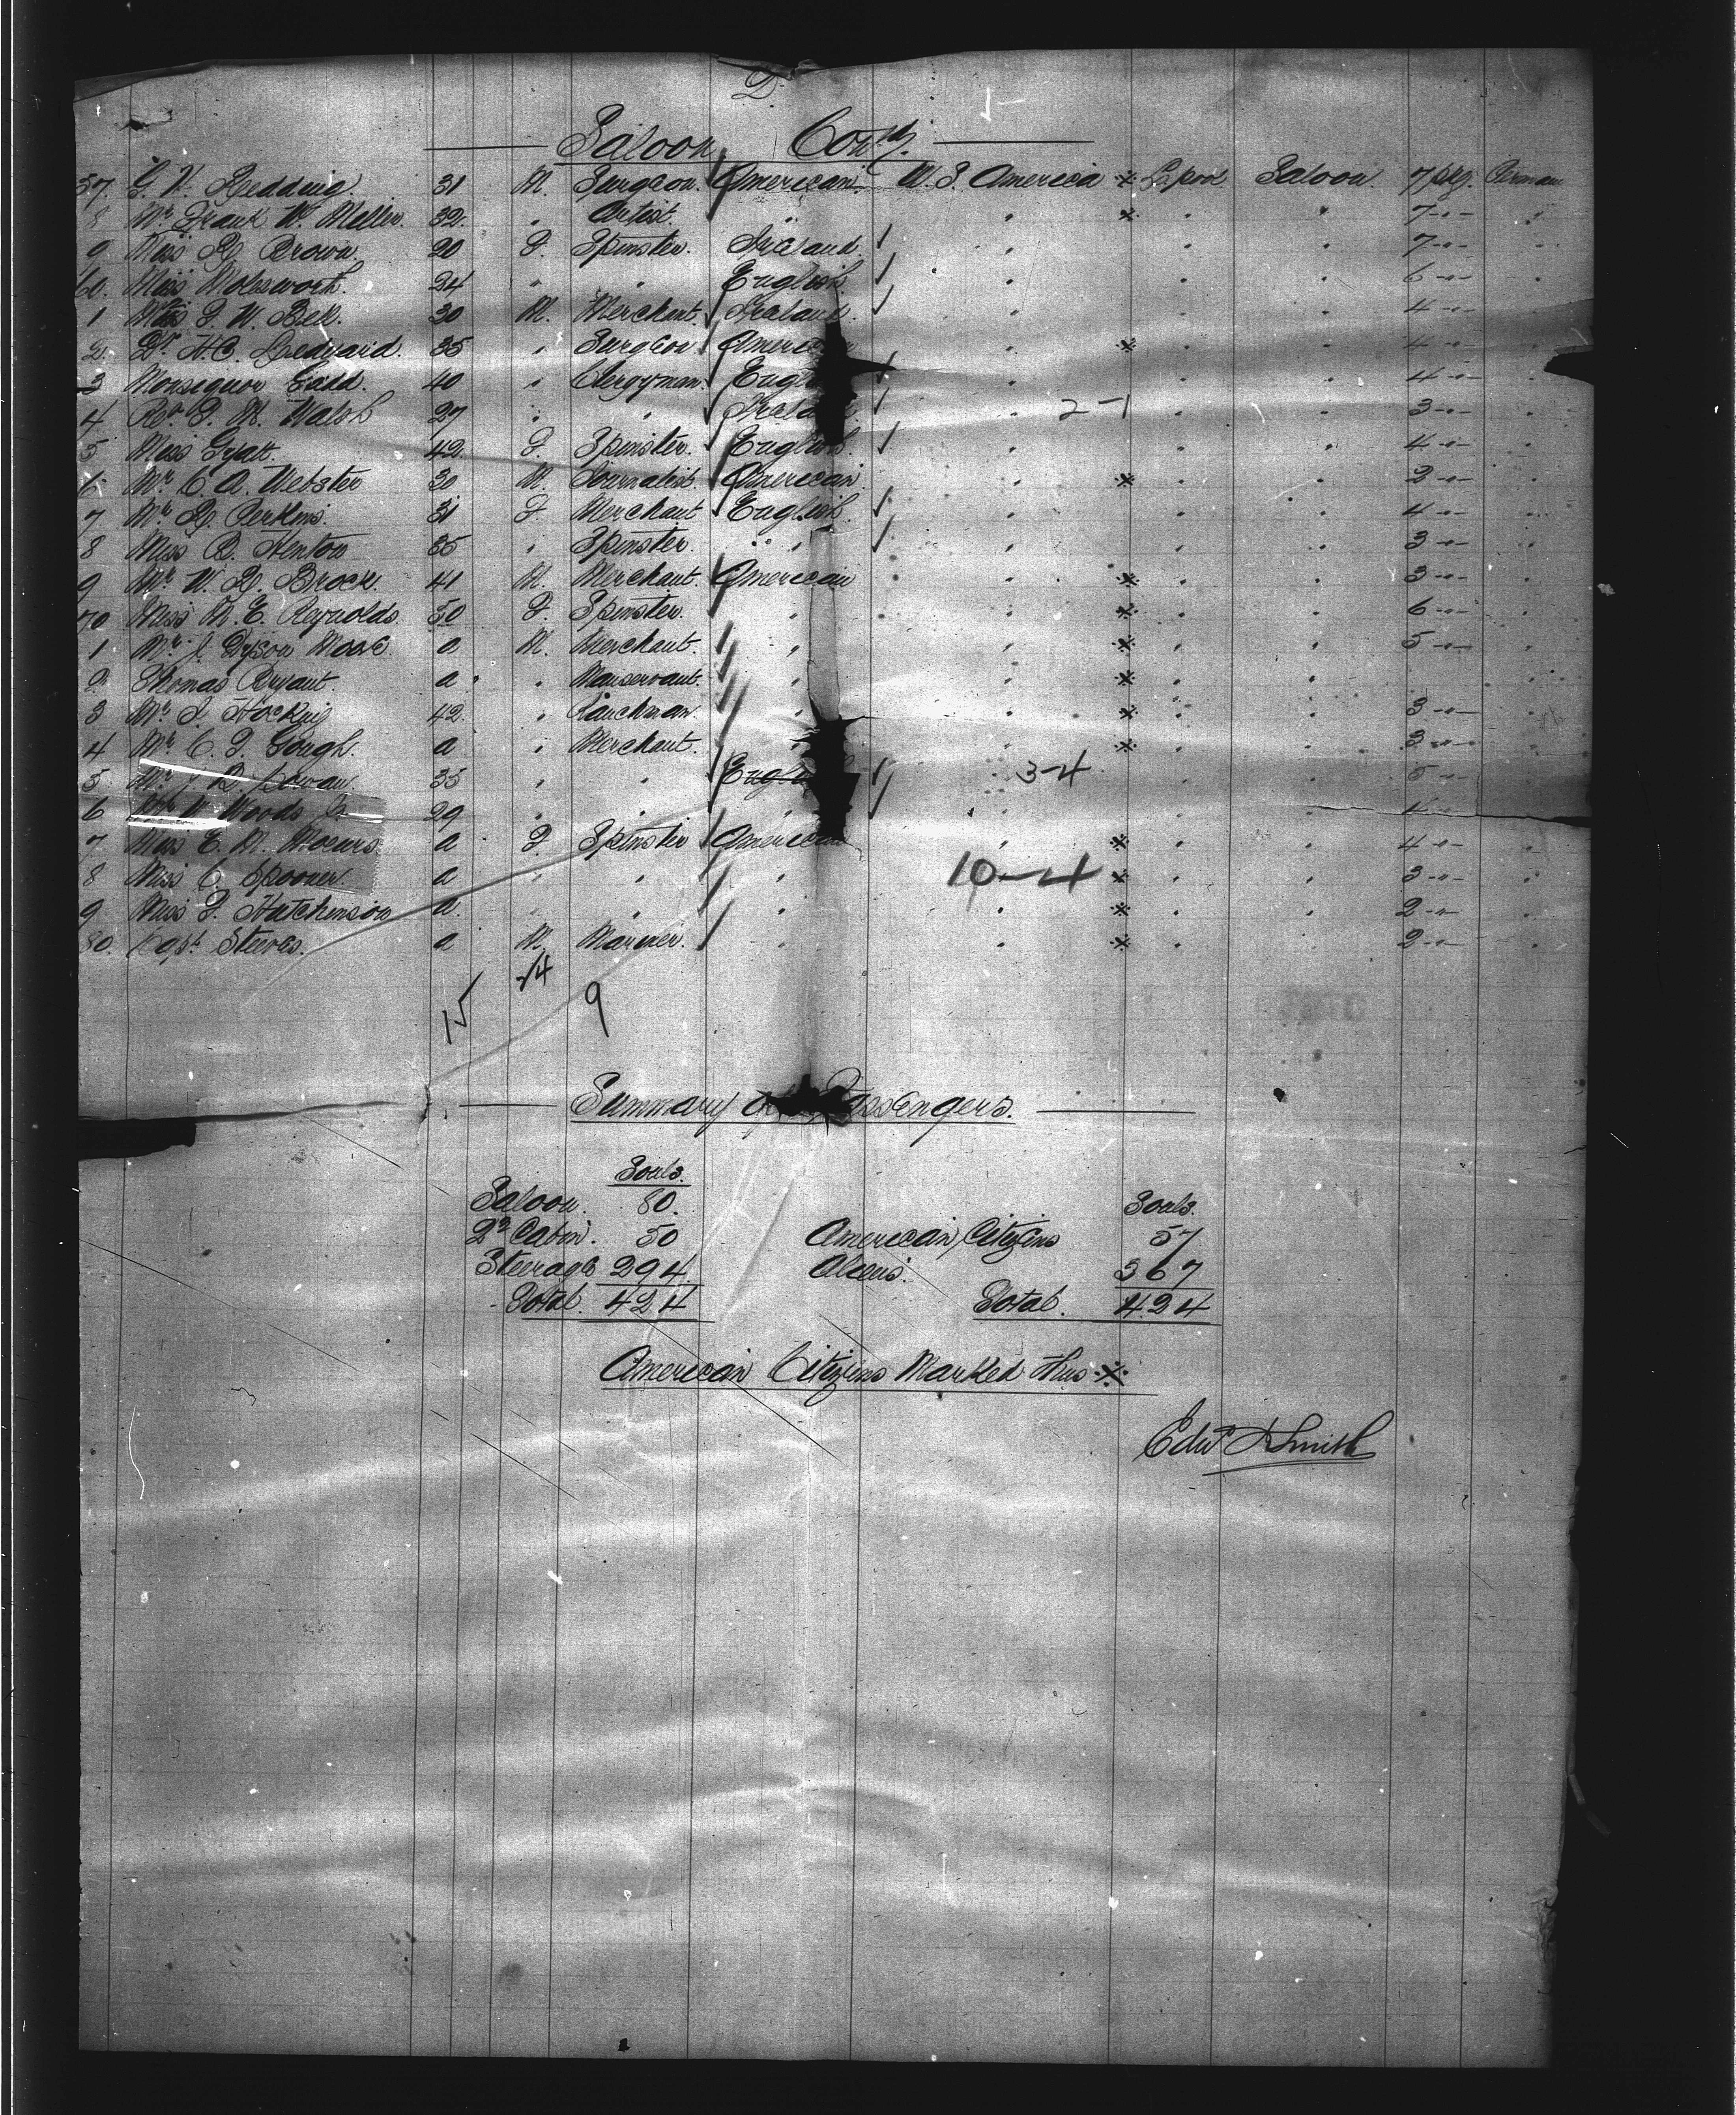 2
Saloon Cont'd.
57. G. H. Redding. 31 M. Surgeon. American. U. S. America ※ L'pool Saloon. 7 pkg.
8 Mr Frank W. Miller. 32. " Artist. " " ※ " " 7 - " - "
9 Miss R. Brown. 20 F. Spinster. Ireland. " " " 7 - " - "
60. Miss Molesworth. 24 " " English. " " " 6 - " - "
1 F. W. Bek. 30 M. Merchant. Ireland. " " " 4 - " - "
2. Dr H. C. Ledyard. 35 " Surgeon American " ※ " " 4 - " - "
3 Monsignor Gadd. 40 " Clergyman. Engl " " " 4 - " - "
4. Rev. F. M. Walsh 27 " " Irela " 2-1 " " 3 - " - "
5 Miss Gyatt. 42. F. Spinster. English. " " " 4 - " - "
6 Mr C. A. Webster 30 M. Journalist. American " ※ " " 2 - " - "
7 Mr R. Perkins. 31 F. Merchant English. " " " 4 - " - "
8 Miss B. Henton 35 " Spinster. " " " " " 3 - " - "
9 Mr W. R. Brock. 41 M. Merchant. American " ※ " " 3 - " - "
70 Miss M. E. Reynolds. 50 F. Spinster. " " ※ " " 6 - " - "
1 Mr J. Dyson Moore a M. Merchant. " " ※ " " 5 - " - "
2. Thomas Bryant. a " Manservant. " " ※ " " "
3 Mr J. Hocking 42. " Ranchman. " " ※ " " 3 - " - "
4 Mr C. F. Gough. a " Merchant. " " ※ " " 3 - " - "
5 Mr J. D. Cowan. 35 " " Engl " 3-4 " " 5 - " - "
6 Mr W. Woods Jr 29 " " " " " "
7 Miss E. M. Moeurs. a F. Spinster American " ※ " " 4 - " - "
8 Miss C. Spooner. a " " " 10-4 ※ " " 3 - " - "
9 Miss F. Hutchinson a. " " " " ※ " " 2 - " - "
80. Capt. Steeves. a M. Mariner. " " ※ " " 2 - " - "
15 14 9
Summary of Passengers.
Souls.
Saloon. 80. Souls.
2nd Cabin. 50 American Citizens 57
Steerage 294 Aliens. 367
Total. 424 Total. 424
American Citizens Marked thus ※
Edwd J Smith